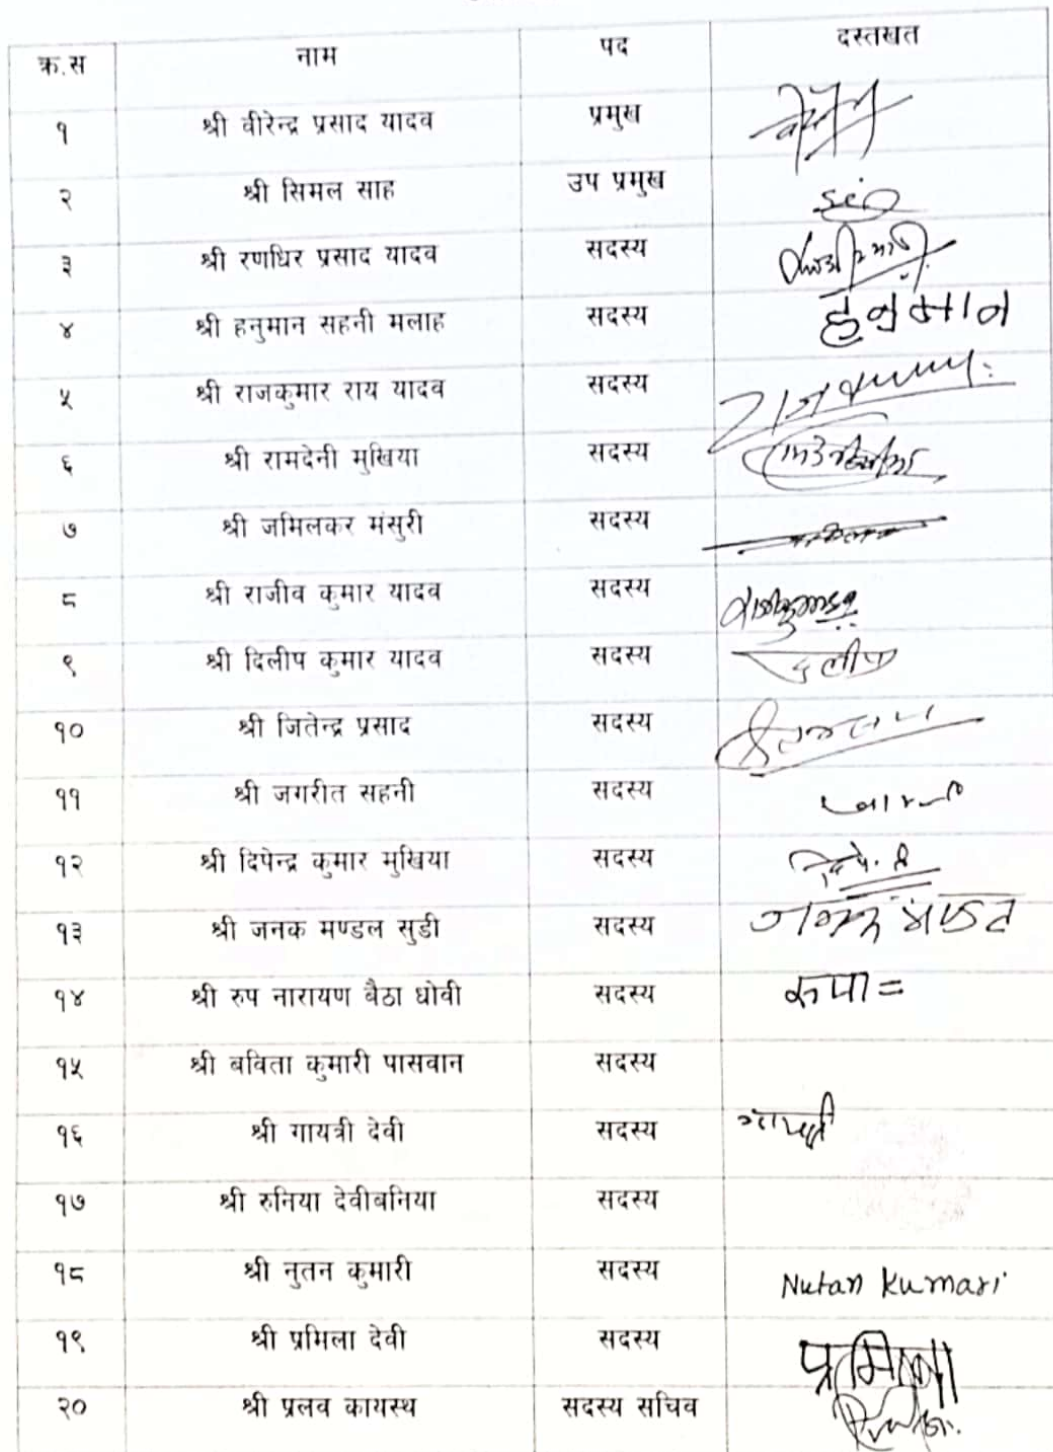 क्र.स नाम पद दस्तखत
१ श्री वीरेन्द्र प्रसाद यादव प्रमुख
२ श्री सिमल साह उप प्रमुख
३ श्री रणधिर प्रसाद यादव सदस्य
४ श्री हनुमान सहनी मलाह सदस्य हनुमान
५ श्री राजकुमार राय यादव सदस्य
६ श्री रामदेनी मुखिया सदस्य
७ श्री जमिलकर मंसुरी सदस्य
८ श्री राजीव कुमार यादव सदस्य
९ श्री दिलीप कुमार यादव सदस्य दलीप
१० श्री जितेन्द्र प्रसाद सदस्य
११ श्री जगरीत सहनी सदस्य
१२ श्री दिपेन्द्र कुमार मुखिया सदस्य
१३ श्री जनक मण्डल सुडी सदस्य
१४ श्री रुप नारायण बैठा धोवी सदस्य रुपा=
१५ श्री बविता कुमारी पासवान सदस्य
१६ श्री गायत्री देवी सदस्य गायत्री
१७ श्री रुनिया देवीबनिया सदस्य
१८ श्री नुतन कुमारी सदस्य Nutan Kumari
१९ श्री प्रमिला देवी सदस्य प्रमिला
२० श्री प्रलव कायस्थ सदस्य सचिव